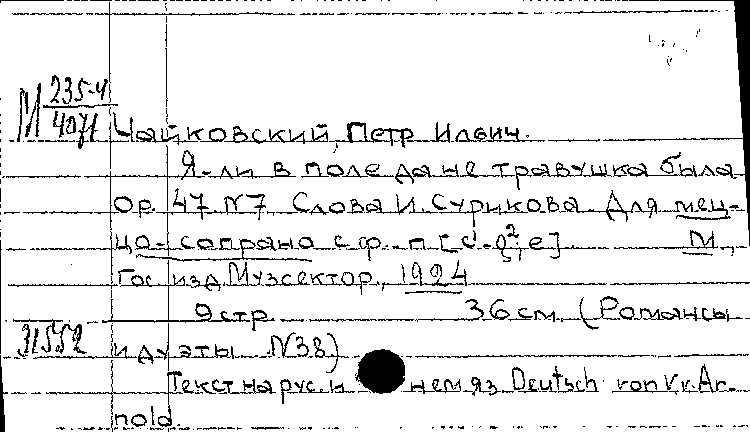 М 235-4
4071
Чайковский, Петр Ильич.
Я-ли в поле да не травушка была
Op. 47. N7. Слова И. Сурикова. Для мец-
цо-сопрано с ф.-п [c-g², e] М.,
Гос. изд. Музсектор, 1924
9 стр. 36 см. (Романсы
31552
и дуэты. N38)
Текст на рус. и нем. яз. Deutsch von V. v. Ar-
nold.